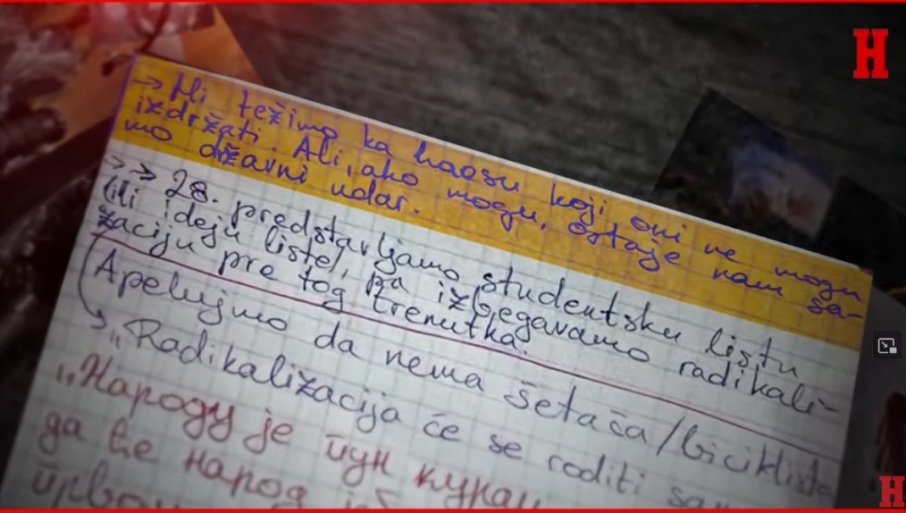 H
→ Mi težimo ka haosu koji oni ne mogu
izdržati. Ali, ako mogu, ostaje nam sa-
mo državni udar.
→→ 28. predstavljamo studentsku listu
(ili ideju liste), pa izbjegavamo radikali-
zaciju pre tog trenutka.
Apelujmo da nema šetača/biciklista
→ „Radikalizacija će se roditi sam
„Народу је пун курац
да ће народ
H